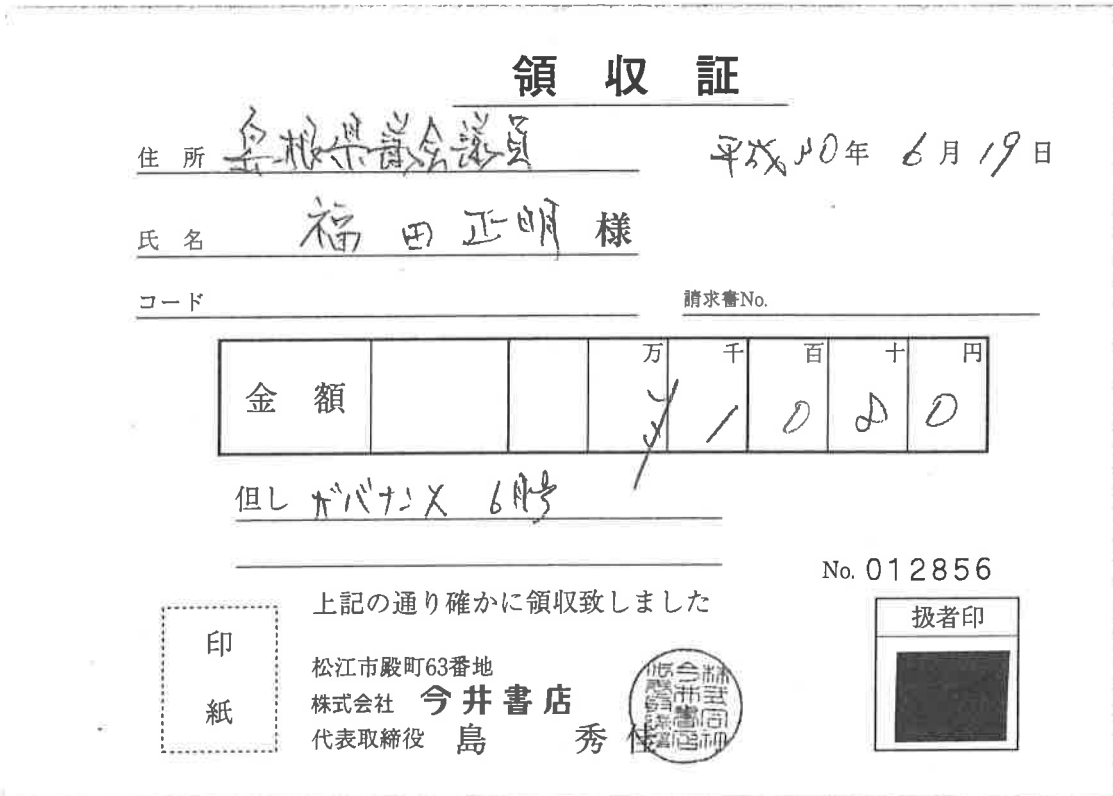 領収証
住所 島根県議会議員 平成30年6月19日
氏名 福田正明 様
コード 請求書No.
金額 万 千 百 十 円
¥1080
但し ガバナンス 6月号
No. 012856
上記の通り確かに領収致しました
扱者印
印紙
松江市殿町63番地
株式会社 今井書店
代表取締役 島 秀佳